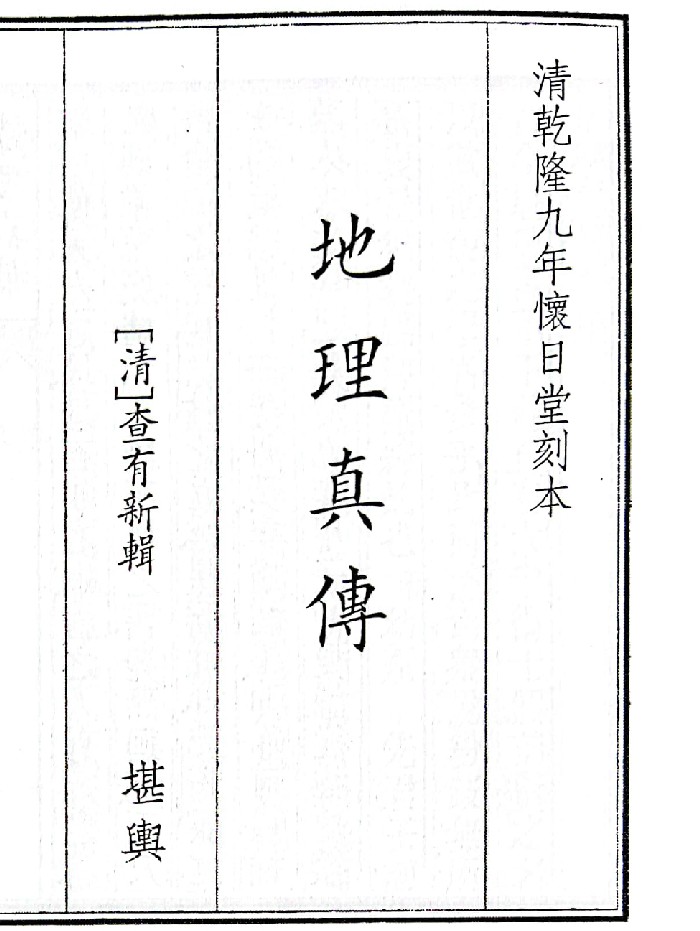 清乾隆九年懷日堂刻本
地理真傳
[清]查有新輯
堪輿